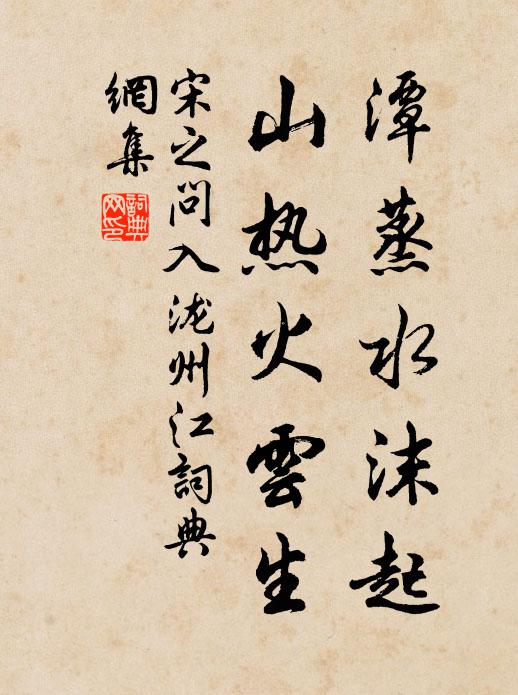 潭蒸水沫起
山热火雲生
宋之问入泷州江詞典
網集
詞典
网印